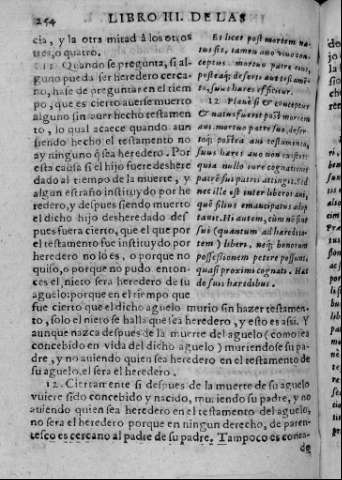 254 LIBRO III. DE LAS
cia, y la otra mitad â los otros
tres, o quatro.
11. Quando se pregunta, si al-
guno pueda ser heredero cerca-
no, hase de preguntar en el tiem
po, que es cierto auerse muerto
alguno sin auer hecho testamen
to, lo qual acaece quando aun
siendo hecho el testamento no
ay ninguno q̃ sea heredero. Por
esta causa si el hijo fuere deshere
dado al tiempo de la muerte, y
algun estraño instituydo por he
redero, y despues siendo muerto
el dicho hijo desheredado des
pues fuera cierto, que el que por
el testamento fue instituydo por
heredero no lo es, o porque no
quiso, o porque no pudo enton-
ces el nieto sera heredero de su
aguelo: porque en el tiempo que
Et licet post mortem na-
tus sit, tamen auo viuo con-
ceptus, mortuo patre eius,
posteaq; deserto aui testamē-
to, suus hæres efficitur.
12. Planè si & conceptus
& natus fuerit post mortem
aui, mortuo patre suo, deser-
toq; postea aui testamento,
suus hæres auo non existit:
quia nullo iure cognationis
patrē sui patris attingit. Sed
nec ille est inter liberos aui,
quē filius emancipatus adop
tauit. Hi autem, cùm nō sint
sui (quantum ad hæredita-
tem) liberi, neq; bonorum
possessionem petere possunt,
quasi proximi cognati. Hæc
de suis hæredibus.
fue cierto que el dicho aguelo murio sin hazer testamen-
to, solo el nieto se halla que sea heredero, y esto es assi. Y
aunque nazca despues de la muerte del aguelo (como sea
concebido en vida del dicho aguelo) muriendose su pa-
dre, y no auiendo quien sea heredero en el testamento de
su aguelo, el sera el heredero.
12. Ciertamente si despues de la muerte de su aguelo
vuiere sido concebido y nacido, muriendo su padre, y no
auiendo quien sea heredero en el testamento del aguelo,
no sera el heredero porque en ningun derecho, de paren-
tesco es cercano al padre de su padre. Tampoco es conta-
de